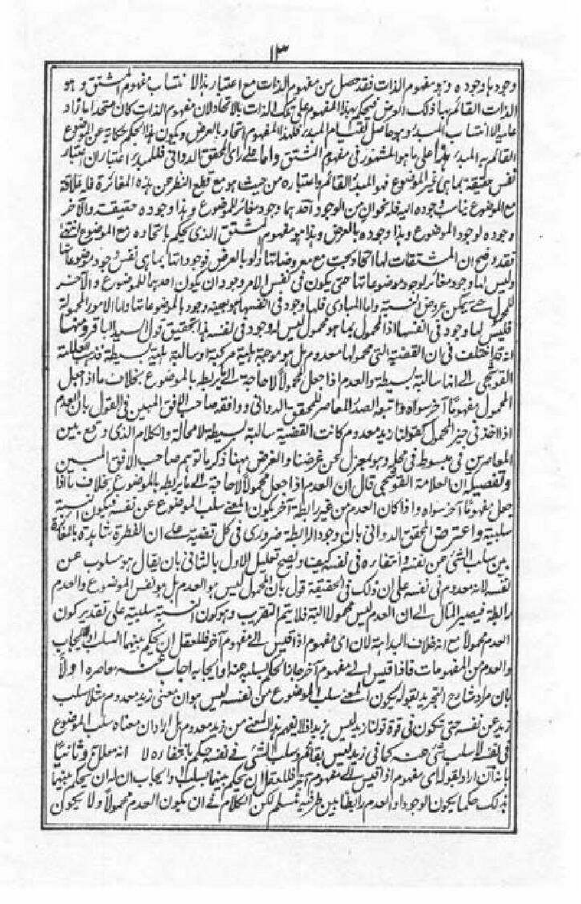 ١٣
وجود با وجوده وهو مفهوم الذات فقد حصل من مفهوم الذات مع اعتبار هذا الانتساب مفهوم المشتق وهو
الذات القائم بها ذلك العرض فيحكم بهذا المفهوم على تلك الذات بالاتحاد لان مفهوم الذات كان متحدا
عليه الانتساب المبدء وهو حاصل لقيام المبدء فلهذا المفهوم اتحاد بالعرض ويكون هذا الحكم حكاية عن الموضوع
القائم به المبدء هذا على ما هو المشهور في مفهوم المشتق واما على راي المحقق الدواني فللمبدء اعتباران اعتبار
نفس حقيقته بما هي غير الموضوع فهو المبدء القائم واعتباره من حيث هو مع قطع النظر عن هذه المغائرة فله علاقة
مع الموضوع بها ينسب وجوده اليه فله نحوان من الوجود احدهما وجود مغائر للموضوع وهذا وجوده حقيقة والآخر
وجوده لوجود الموضوع وهذا وجوده بالعرض وهذا هو مفهوم المشتق الذي يحكم باتحاده مع الموضوع
فقد وضح ان المشتقات لها اتحاد بحت مع معروضاتها ولو بالعرض فوجوداتها بما هي نفس وجود موضوعاتها
وليس لها وجود مغائر لوجود موضوعاتها حتى يكون في نفس الامر وجودان يكون احدهما للموضوع والآخر
للمحمول حتى يمكن عروض النسبة واما المبادي فلها وجود في انفسها هو بعينه وجود بالموضوعاتها واما الامور المحمولة
فليس لها وجود في انفسها اذ المحمول بما هو محمول ليس له وجود في نفسه هذا تحقيق قول السيد الباقر
قد اختلف في ان القضية التي محمولها معدوم هل هو موجبة هلية مركبة او سالبة هلية بسيطة فذهب العلامة
القوشجي الى انها سالبة بسيطة والعدم اذا جعل محمولا لا حاجة الى ما يربطه بالموضوع بخلاف ما اذا جعل
المحمول مفهوما آخر سواه واتبعه الصدر المعاصر للمحقق الدواني ووافقه صاحب الافق المبين في القول بان العدم
اذا اخذ في حيز المحمول كقولنا زيد معدوم كانت القضية سالبة بسيطة لا محالة والكلام الذي وقع بين
المعاصرين في مبسوط في محله وهو بمعزل عن غرضنا والغرض ههنا ذكر ما توهم صاحب الافق المبين
وتفصيله ان العلامة القوشجي قال ان العدم اذا جعل محمولا لا حاجة الى ما يربطه بالموضوع بخلاف ما اذا
جعل مفهوما آخر سواه واذا كان العدم من غير رابطة آخر يكون المعنى سلب الموضوع عن نفسه فيكون النسبة
سلبية واعترض المحقق الدواني بان وجود الرابطة ضروري في كل قضية على ان الفطرة شاهدة بالمغائرة
بين سلب الشيء عن نفسه وانتفاره في نفسه كيف ويصح تعليل الاول بالثاني بان يقال هو مسلوب عن
نفسه لانه معدوم في نفسه على ان ذلك في الحقيقة قول بان المحمول ليس هو العدم بل هو نفس الموضوع والعدم
رابطة فيصير المآل الى ان العدم ليس محمولا البتة فلا يتم التقريب وهو كون النسبة سلبية على تقدير كون
العدم محمولا مع انه خلاف البداهة لان اي مفهوم اذا قيس الى مفهوم آخر فللعقل ان يحكم بينهما بالسلب او بالايجاب
والعدم من المفهومات فاذا قيس الى مفهوم آخر جاز الحكم بسلبه عنه وايجابه اجاب عنه معاصره اولا
بان مراد شارح التجريد بقوله يكون المعنى سلب الموضوع عن نفسه ليس هو ان معنى زيد معدوم مثلا سلب
زيد عن نفسه حتى تكون في قوة قولنا زيد ليس بزيد اذ لا يفهم هذا المعنى من زيد معدوم بل اراد ان معناه سلب الموضوع
في نفسه لا سلب شيء عنه كما في زيد ليس بقائم وسلب الشيء في نفسه حكم بانتفاره لا انه معلل به وثانيا
بانه ان اراد بقوله اي مفهوم اذا قيس الى مفهوم آخر فللعقل ان يحكم بينهما بالسلب والايجاب ان له ان يحكم بينهما
بذلك حكما يكون الوجود او العدم رابطا بين طرفيه فمسلم لكن الكلام في ان يكون العدم محمولا ولا يكون